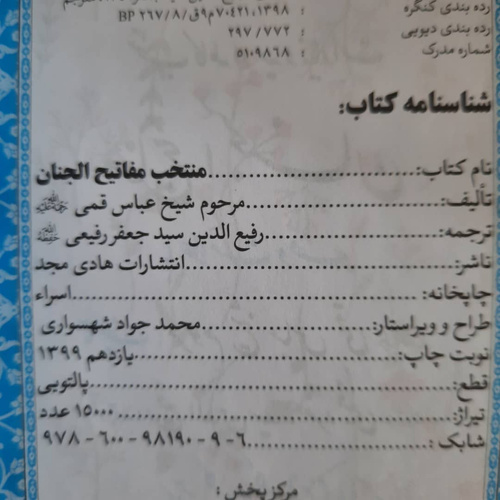 رده بندی کنگره : ۱۳۹۸ ،۷۰۴۲۱م۹ق/۸/BP ۲۶۷
رده بندی دیویی : ۲۹۷/۷۷۲
شماره مدرک : ۵۱۰۹۸۶۸
شناسنامه کتاب:
نام کتاب:........منتخب مفاتیح الجنان
تألیف:........مرحوم شیخ عباس قمی
ترجمه:........رفیع الدین سید جعفر رفیعی
ناشر:........انتشارات هادی مجد
چاپخانه:........اسراء
طراح و ویراستار:........محمد جواد شهسواری
نوبت چاپ:........یازدهم ۱۳۹۹
قطع:........پالتویی
تیراژ:........۱۵۰۰۰ عدد
شابک :........۶-۹-۹۸۱۹۰-۶۰۰-۹۷۸
مرکز پخش :